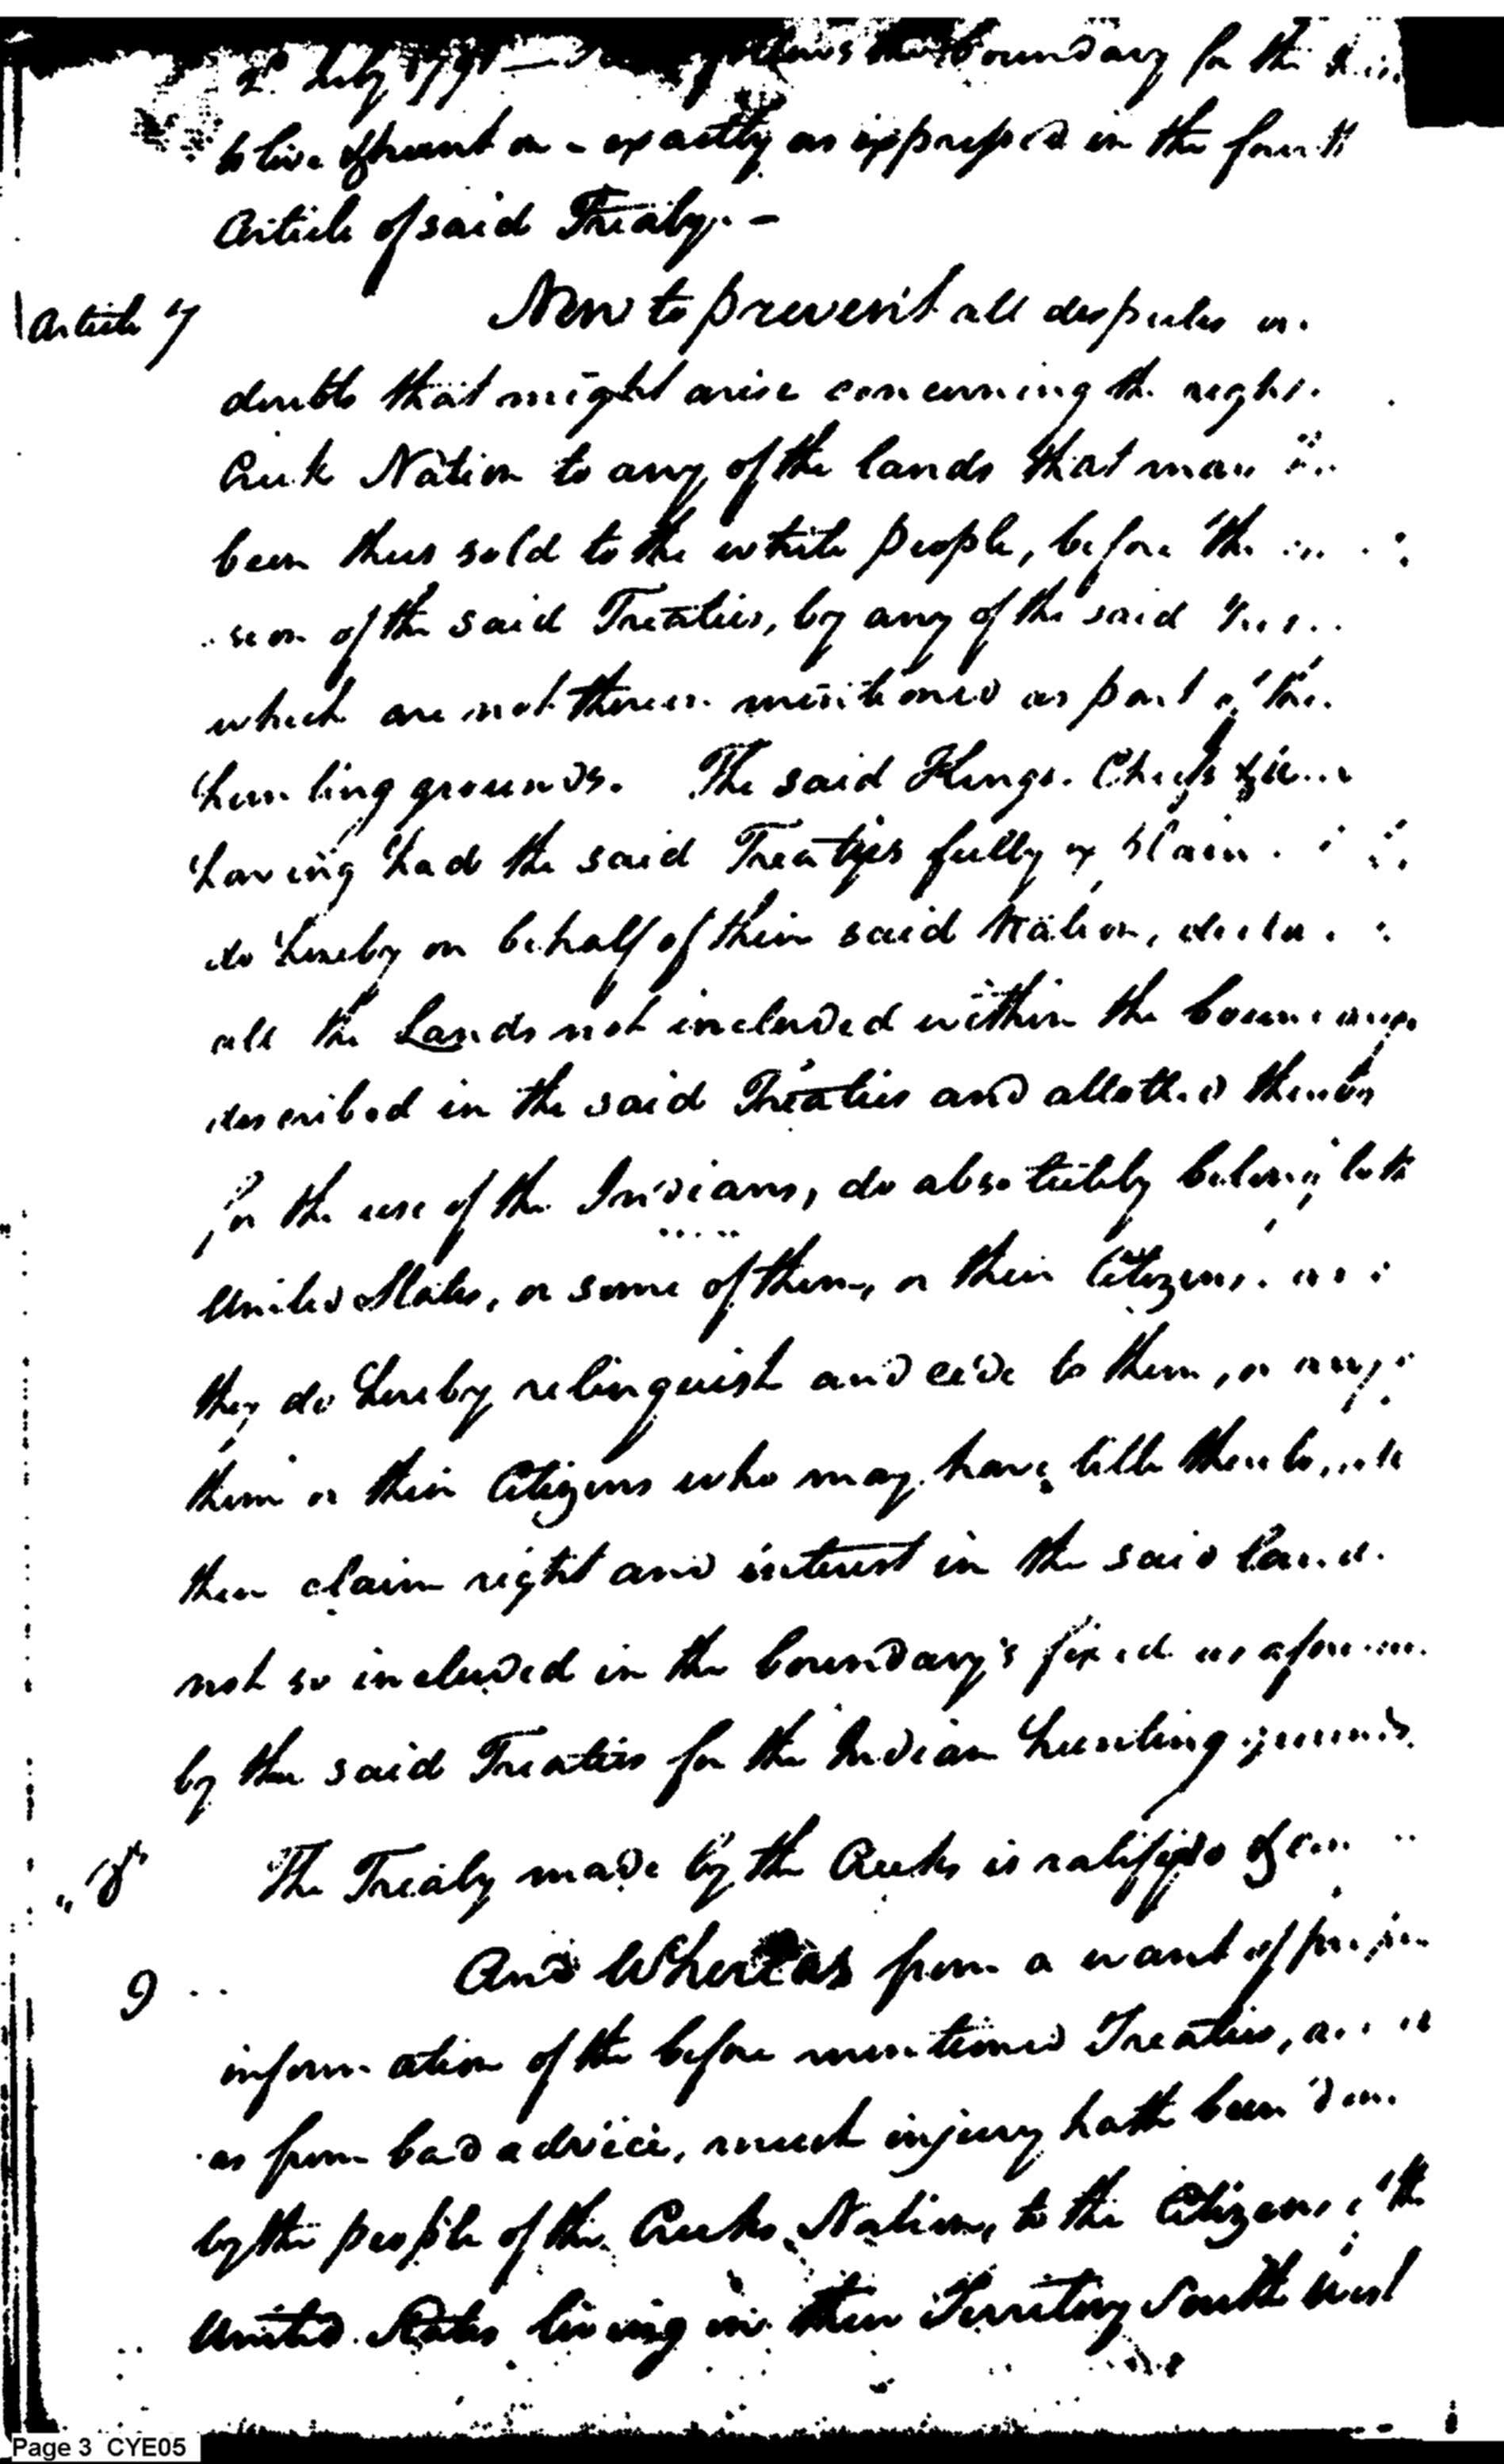 2d July 1791 boundary for the
to live & hunt on - exactly as expressed in the fourth
Article of said Treaty. -
Article 7 Now to prevent all desputes or
doubts that might arise concerning the right
Creek Nation to any of the lands that may
been thus sold to the white people, before the
of the said Treaties, by any of the said
which are not therein mentioned as part of the
hunting grounds. The said Kings. Chiefs &
having had the said Treaties fully explain
do hereby on behalf of their said Nation, declare
all the Lands not included within the boundarys
described in the said Treaties and allotted therein
for the use of the Indians, do absolutely belong to the
United States, or some of them, or their Citizens. and
they do hereby relinquish and cede to them, or any of
them or their Citizens who may have title thereto, all
their claim right and interest in the said land
not so included in the boundary's fixed as aforesaid
by the said Treaties for the Indian hunting grounds.
" 8 The Treaty made by the Creeks is ratifyed &
9 And Whereas from a want of proper
information of the before mentioned Treaties, as well
as from bad advice, much injury hath been done
by the people of the Creeks Nation, to the Citizens of the
United States living in their Territory South West
Page 3 CYE05